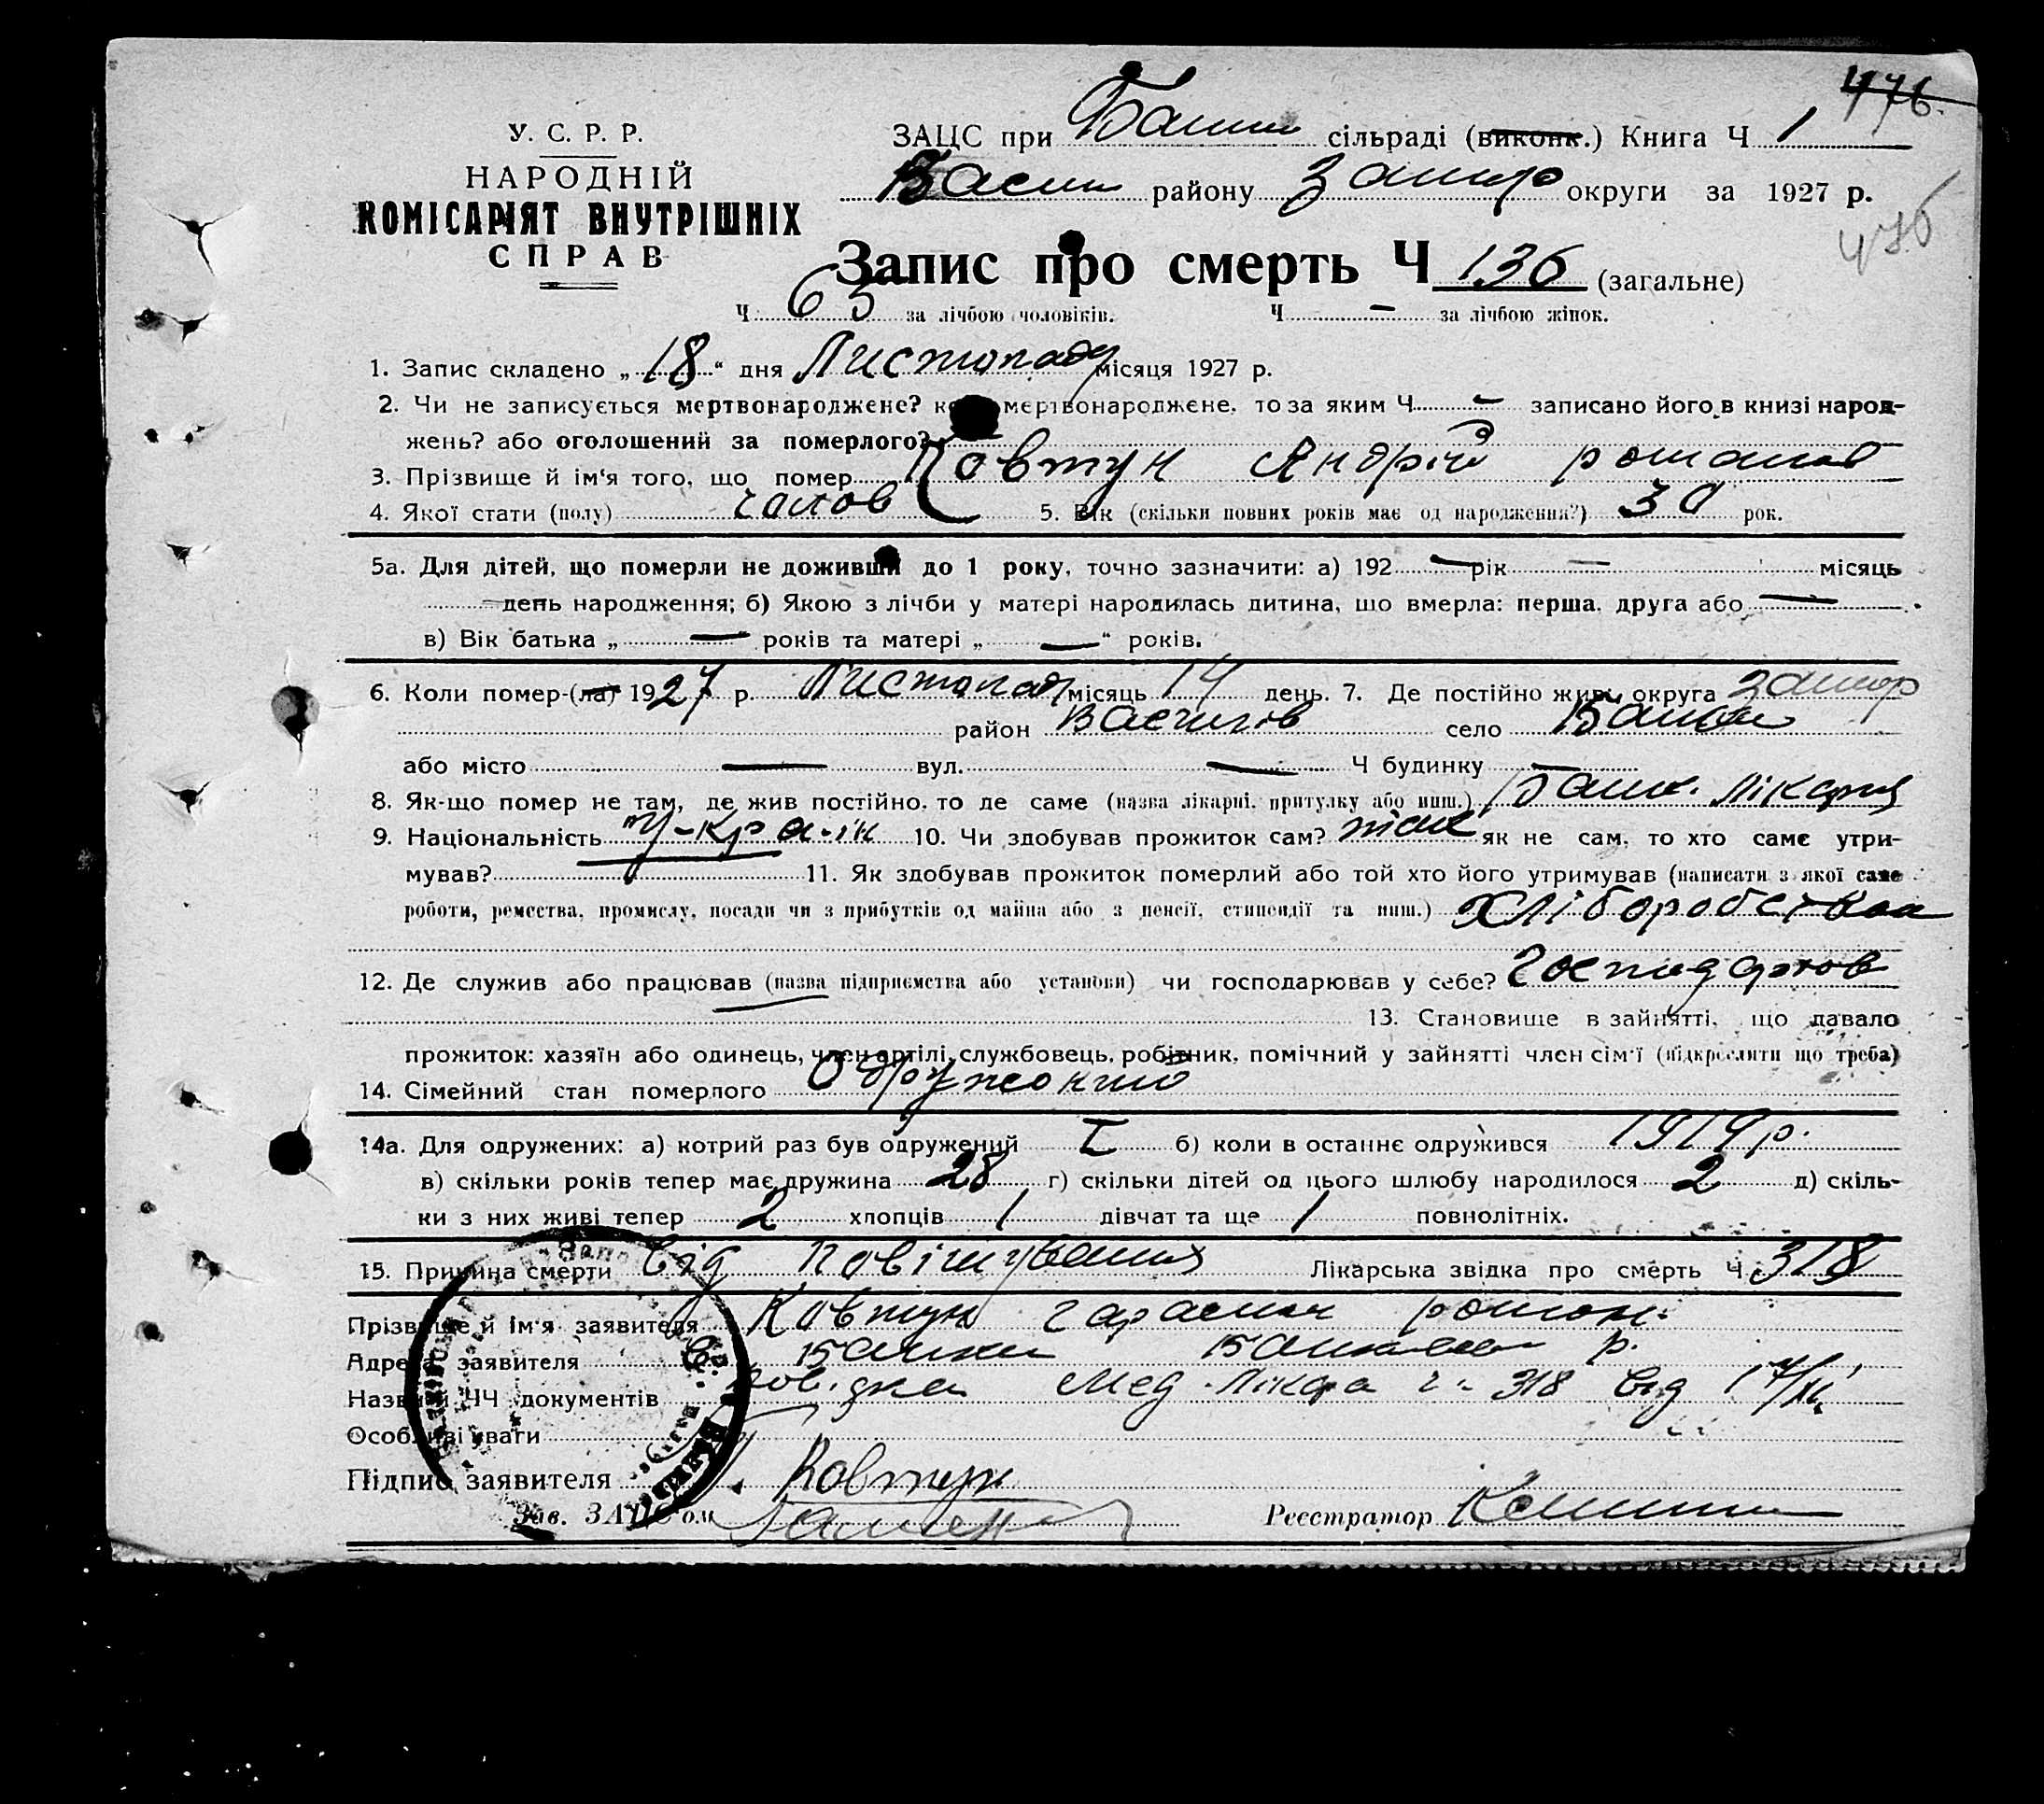 476.
У. С. Р. Р.
НАРОДНІЙ
КОМІСАРІЯТ ВНУТРІШНІХ
СПРАВ
ЗАЦС при сільраді (виконк.) Книга Ч 1
Васил району Запор округи за 1927 р.
476
Запис про смерть Ч 136 (загальне)
Ч 65 за лічбою чоловіків. Ч — за лічбою жінок.
1. Запис складено „18“ дня Листопаду місяця 1927 р.
2. Чи не записується мертвонароджене? мертвонароджене, то за яким Ч — записано його в книзі народ-
жень? або оголошений за померлого?
3. Прізвище й ім'я того, що помер Ковтун Андрій роман
4. Якої стати (полу) чолов 5. Вік (скільки повних років має од народження?) 30 рок.
5а. Для дітей, що померли не доживши до 1 року, точно зазначити: а) 192 — рік — місяць
— день народження; б) Якою з лічби у матері народилась дитина, що вмерла: перша, друга або —
в) Вік батька „ — “ років та матері „ — “ років.
6. Коли помер-(ла) 1927 р. Листопад місяць 14 день. 7. Де постійно жив: округа Запор
район Василів село
або місто — вул. — Ч будинку —
8. Як-що помер не там, де жив постійно, то де саме (назва лікарні, притулку або инш.) лікарня
9. Національність Украін 10. Чи здобував прожиток сам? так як не сам, то хто саме утри-
мував? 11. Як здобував прожиток померлий або той хто його утримував (написати з якої саме
роботи, ремества, промислу, посади чи з прибутків од майна або з пенсії, стипендії та инш.) хліборобства
12. Де служив або працював (назва підприємства або установи) чи господарював у себе? господарюв
13. Становище в зайнятті, що давало
прожиток: хазяїн або одинець, член артілі, службовець, робітник, помічний у зайнятті член сім'ї (підкреслити що треба)
14. Сімейний стан померлого Одружоний
14а. Для одружених: а) котрий раз був одружений I б) коли в останнє одружився 1919 р.
в) скільки років тепер має дружина 28 г) скільки дітей од цього шлюбу народилося 2 д) скіль-
ки з них живі тепер 2 хлопців 1 дівчат та ще 1 повнолітніх.
15. Причина смерти Від повішування Лікарська звідка про смерть Ч 318
Прізвище й ім'я заявителя Ковтун Гарасим роман.
Адреса заявителя
Назви й ЧЧ документів Мед. Лікаря ч. 318 від 17/XI
Особливі уваги
Підпис заявителя Ковтун
Зав. ЗАЦС'ом Реєстратор